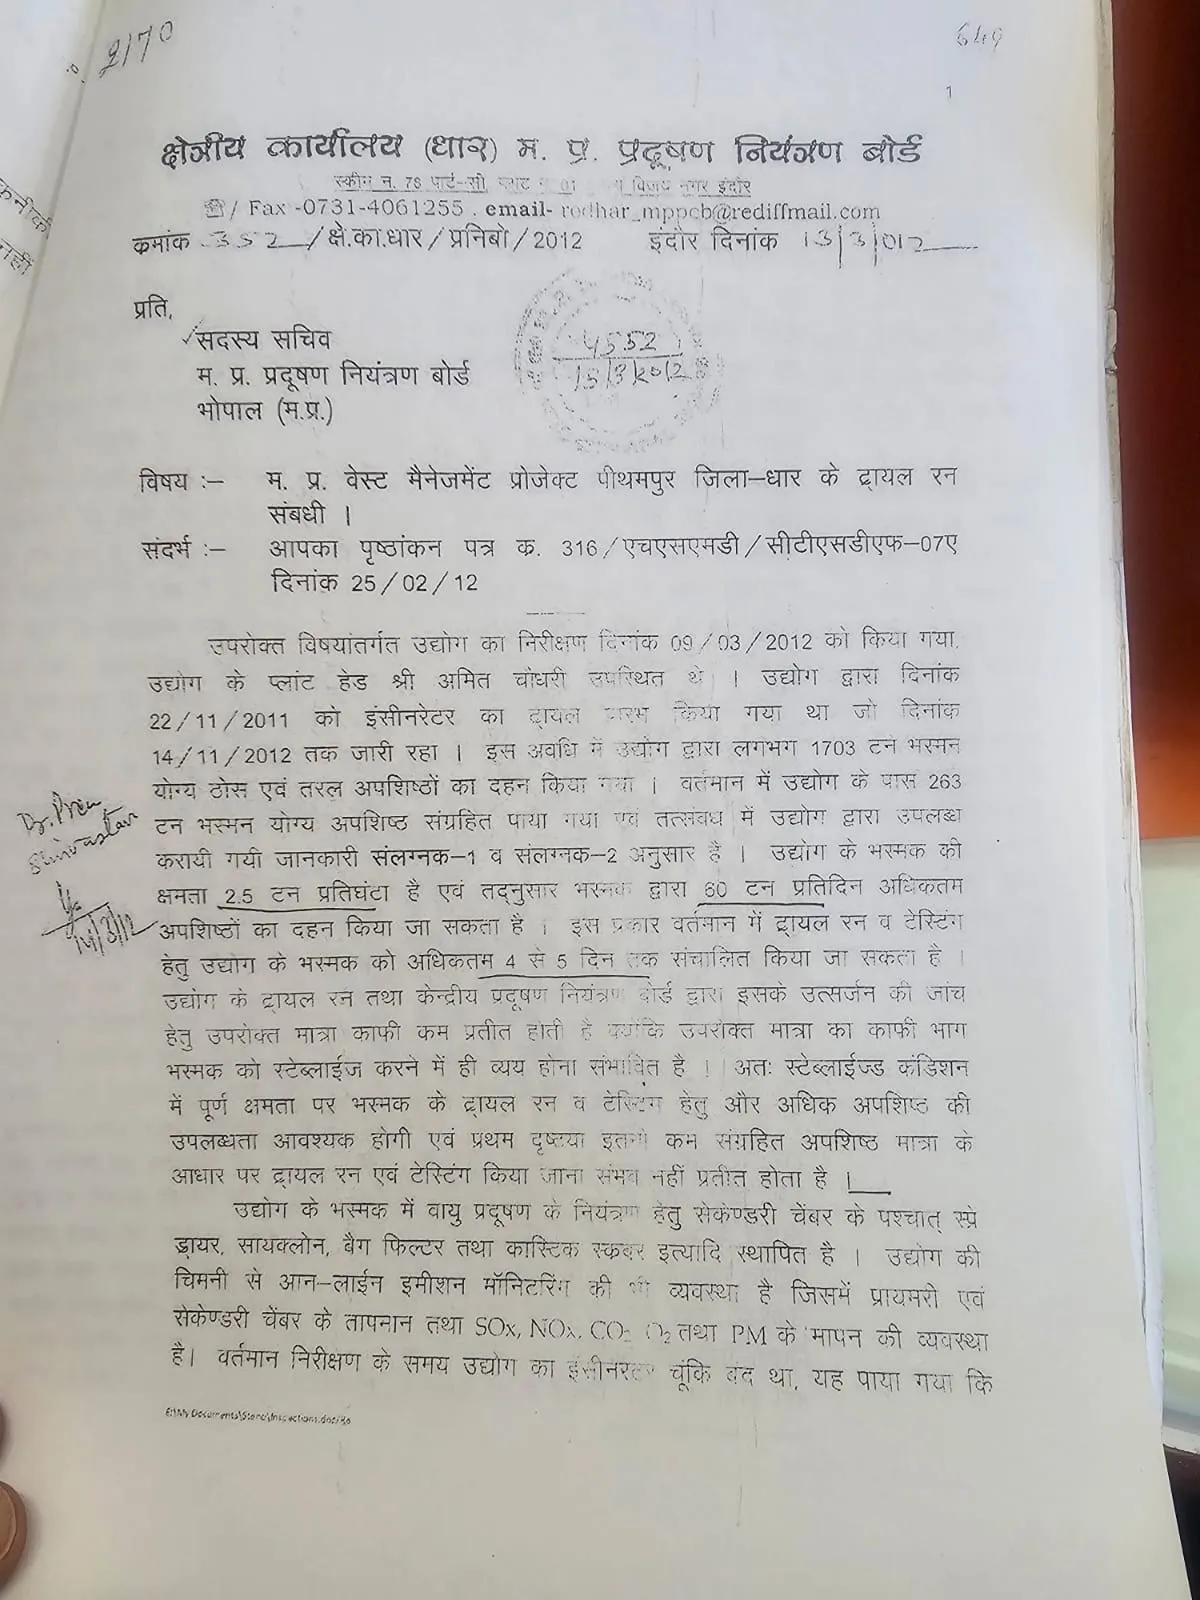 2170
649
1
क्षेत्रीय कार्यालय (धार) म. प्र. प्रदूषण नियंत्रण बोर्ड
स्कीम न. 78 पार्ट-सी, 01 विजय नगर इंदौर
☎/ Fax -0731-4061255 . email- rodhar_mppcb@rediffmail.com
क्रमांक 352 /क्षे.का.धार/प्रनिबो/2012 इंदौर दिनांक 13/3/012
प्रति,
सदस्य सचिव
म. प्र. प्रदूषण नियंत्रण बोर्ड
भोपाल (म.प्र.)
4552
15/3/2012
विषय :– म. प्र. वेस्ट मैनेजमेंट प्रोजेक्ट पीथमपुर जिला–धार के ट्रायल रन
संबधी ।
संदर्भ :– आपका पृष्ठांकन पत्र क. 316/एचएसएमडी/सीटीएसडीएफ–07ए
दिनांक 25/02/12
उपरोक्त विषयांतर्गत उद्योग का निरीक्षण दिनांक 09/03/2012 को किया गया.
उद्योग के प्लांट हेड श्री अमित चौधरी उपस्थित थे । उद्योग द्वारा दिनांक
22/11/2011 को इंसीनरेटर का ट्रायल प्रारंभ किया गया था जो दिनांक
14/11/2012 तक जारी रहा । इस अवधि में उद्योग द्वारा लगभग 1703 टन भस्मन
योग्य ठोस एवं तरल अपशिष्ठों का दहन किया गया । वर्तमान में उद्योग के पास 263
टन भस्मन योग्य अपशिष्ठ संग्रहित पाया गया एवं तत्संबध में उद्योग द्वारा उपलब्ध
करायी गयी जानकारी संलग्नक–1 व संलग्नक–2 अनुसार है । उद्योग के भस्मक की
क्षमता 2.5 टन प्रतिघंटा है एवं तद्नुसार भस्मक द्वारा 60 टन प्रतिदिन अधिकतम
अपशिष्ठों का दहन किया जा सकता है । इस प्रकार वर्तमान में ट्रायल रन व टेस्टिंग
हेतु उद्योग के भस्मक को अधिकतम 4 से 5 दिन तक संचालित किया जा सकता है ।
उद्योग के ट्रायल रन तथा केन्द्रीय प्रदूषण नियंत्रण बोर्ड द्वारा इसके उत्सर्जन की जांच
हेतु उपरोक्त मात्रा काफी कम प्रतीत होती है क्योंकि उपरोक्त मात्रा का काफी भाग
भस्मक को स्टेब्लाईज करने में ही व्यय होना संभावित है । अतः स्टेब्लाईज्ड कंडिशन
में पूर्ण क्षमता पर भस्मक के ट्रायल रन व टेस्टिंग हेतु और अधिक अपशिष्ठ की
उपलब्धता आवश्यक होगी एवं प्रथम दृष्टया इतनी कम संग्रहित अपशिष्ठ मात्रा के
आधार पर ट्रायल रन एवं टेस्टिंग किया जाना संभव नहीं प्रतीत होता है ।
उद्योग के भस्मक में वायु प्रदूषण के नियंत्रण हेतु सेकेण्डरी चेंबर के पश्चात् स्प्रे
ड्रायर, सायक्लोन, बैग फिल्टर तथा कास्टिक स्क्रबर इत्यादि स्थापित है । उद्योग की
चिमनी से आन–लाईन इमीशन मॉनिटरिंग की भी व्यवस्था है जिसमें प्रायमरी एवं
सेकेण्डरी चेंबर के तापमान तथा SOx, NOx, CO₂ O₂ तथा PM के मापन की व्यवस्था
है। वर्तमान निरीक्षण के समय उद्योग का इंसीनरेटर चूंकि बंद था, यह पाया गया कि
Dr. Prem
Shrivastav
14/3/12
E:\My Documents\Steno\Inspections.doc/Ko